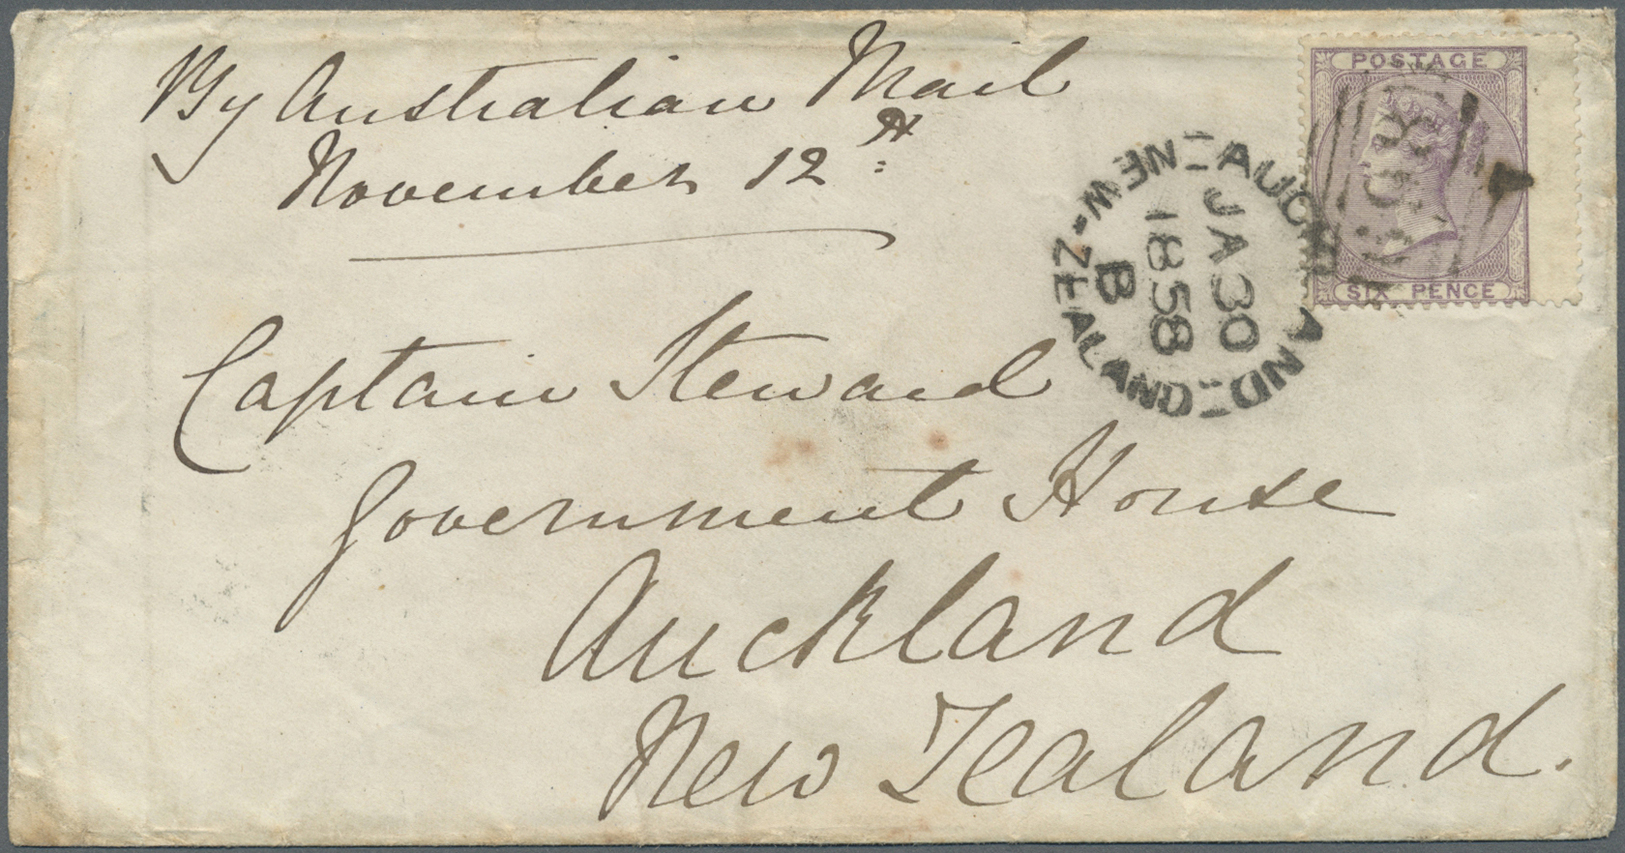 By Australian Mail
November 12th
Captain Steward
Government House
Auckland
New Zealand.
POSTAGE
SIX PENCE
AUCKLAND
NEW-ZEALAND
JA 30
1858
B